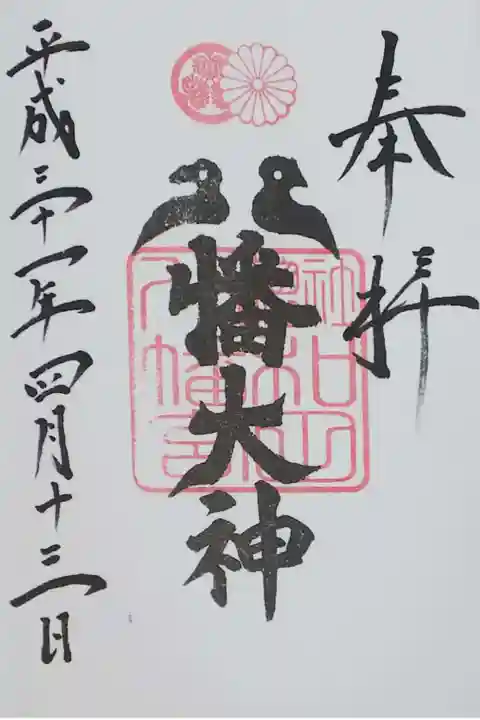 奉拝
八幡大神
平成三十一年四月十三日